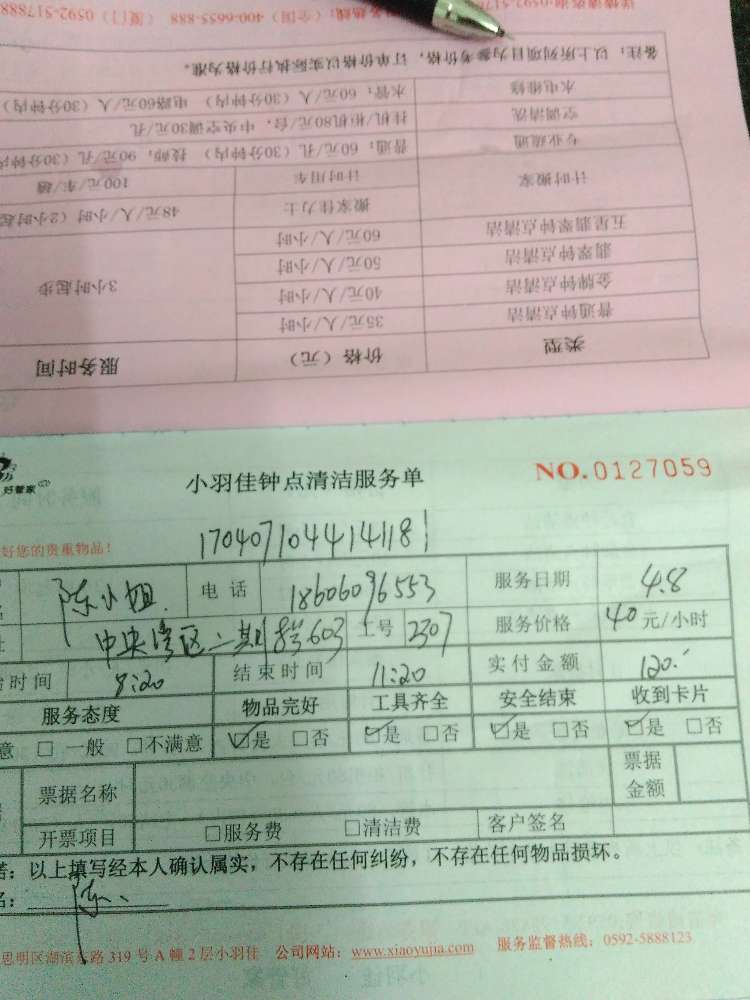 备注：以上所列项目为参考价格，订单价格以实际执行价格为准。
水电维修 水管：60元/人（30分钟内） 电路60元/人（30分钟内）
空调清洗 挂机/柜机80元/台，中央空调30元/孔
专业疏通 普通：60元/孔（30分钟内） 技师：90元/孔（30分钟内
计时搬家 计时用车 100元/车/趟
搬家佳力士 48元/人/小时（2小时起
五星翡翠钟点清洁 60元/人/小时
翡翠钟点清洁 50元/人/小时
金牌钟点清洁 40元/人/小时 3小时起步
普通钟点清洁 35元/人/小时
类型 价格（元） 服务时间
好管家
小羽佳钟点清洁服务单
NO.0127059
好您的贵重物品！
1704071044141181
陈小姐 电话 18606096553 服务日期 4.8
中央湾区二期 603 工号 2307 服务价格 40元/小时
时间 8:20 结束时间 11:20 实付金额 120.
服务态度 物品完好 工具齐全 安全结束 收到卡片
意 □一般 □不满意 ☑是 □否 ☑是 □否 ☑是 □否 ☑是 □否
票据名称 票据金额
开票项目 □服务费 □清洁费 客户签名
诺：以上填写经本人确认属实，不存在任何纠纷，不存在任何物品损坏。
名： 陈
思明区湖滨 路 319 号 A 幢 2 层小羽佳 公司网站：www.xiaoyujia.com 服务监督热线：0592-5888123